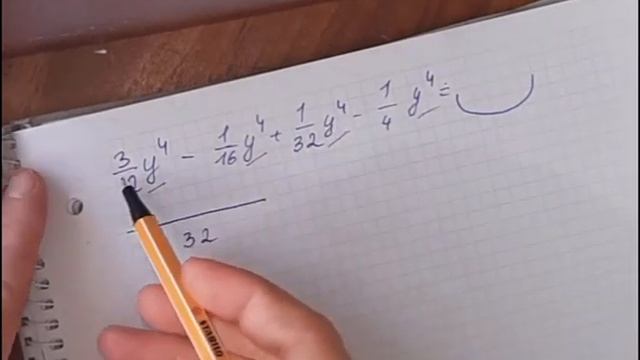 3/32 y⁴ − 1/16 y⁴ + 1/32 y⁴ − 1/4 y⁴ =
32
STABILO